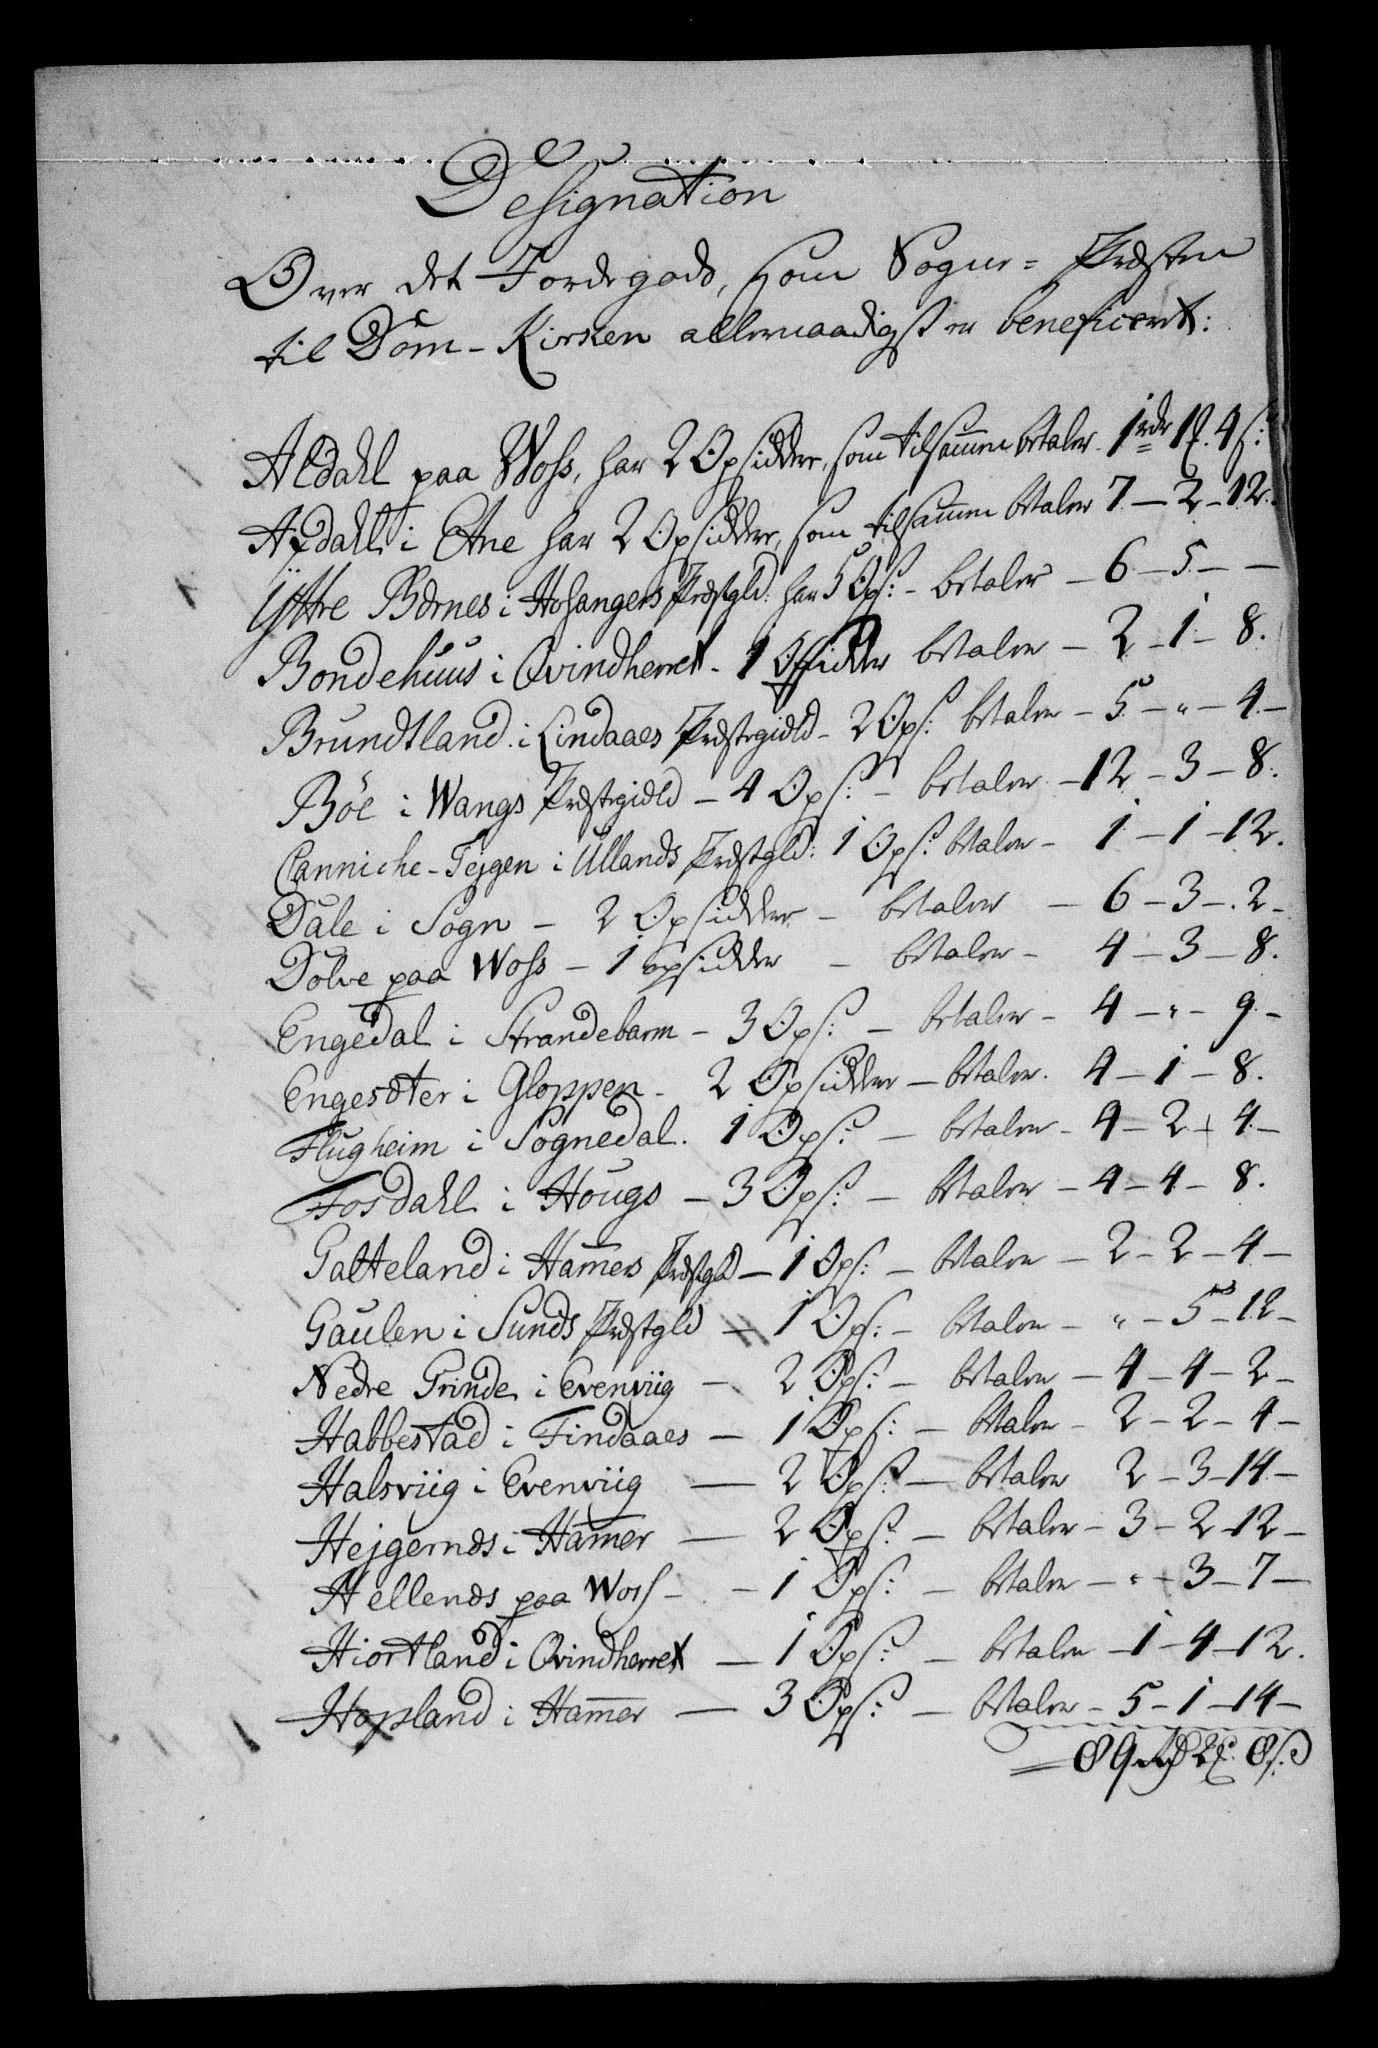 Designation
Over det Jordegods, som Sogne= Præsten
til Dom-Kirken allernaadigst er beneficeret:
Aldahl paa Woss, har 2 Opsiddere, som tilsamen betaler 1 rdr 1 ℔. 4 s:
Axdahl i Etne har 2 Opsiddere, som tilsamen betaler 7 — 2 — 12.
Yttre Børnes i Hosangers Præstgld: har 5 Ops: — betaler — 6 — 5 — —
Bondehuus i Qvindherret — 1 Opsidder betaler — 2 — 1 — 8.
Brundtland i Lindaaes Præstegield — 2 Ops: betaler — 5 — " — 4 —
Bøe i Wangs Præstegield — 4 Ops: — betaler — 12 — 3 — 8.
Canniche-Tejgen i Ullands Præstgld: 1 Ops: betaler — 1 — 1 — 12.
Dale i Sogn — 2 Opsiddere — betaler — 6 — 3 — 2 —
Dolve paa Woss — 1 opsidder — betaler — 4 — 3 — 8.
Engedal i Strandebarm — 3 Ops: — betaler — 4 — " — 9 —
Engesæter i Gloppen — 2 Opsiddere — betaler. 4 — 1 — 8.
Flugheim i Sognedal. 1 Ops: — betaler — 4 — 2 — 4 —
Fosdahl i Hougs — 3 Ops: — betaler — 4 — 4 — 8.
Galteland i Hamers Præstgld — 1 Ops: — betaler — 2 — 2 — 4 —
Gaulen i Sunds Præstgld — 1 Ops: — betaler — " — 5 — 12 —
Nedre Grinde i Evenviig — 2 Ops: — betaler — 4 — 4 — 2 —
Habbestad i Findaaes — 1 Ops: — betaler — 2 — 2 — 4 —
Halsviig i Evenviig — 2 Ops: — betaler 2 — 3 — 14 —
Hejgernæs i Hamer — 2 Ops: — betaler — 3 — 2 — 12 —
Hellenæs paa Woss — 1 Ops: — betaler — " — 3 — 7 —
Hiortland i Qvindherret — 1 Ops: — betaler — 1 — 4 — 12.
Hopland i Hamer — 3 Ops: — betaler — 5 — 1 — 14 —
89 rdr 2 ℔. 8 s: